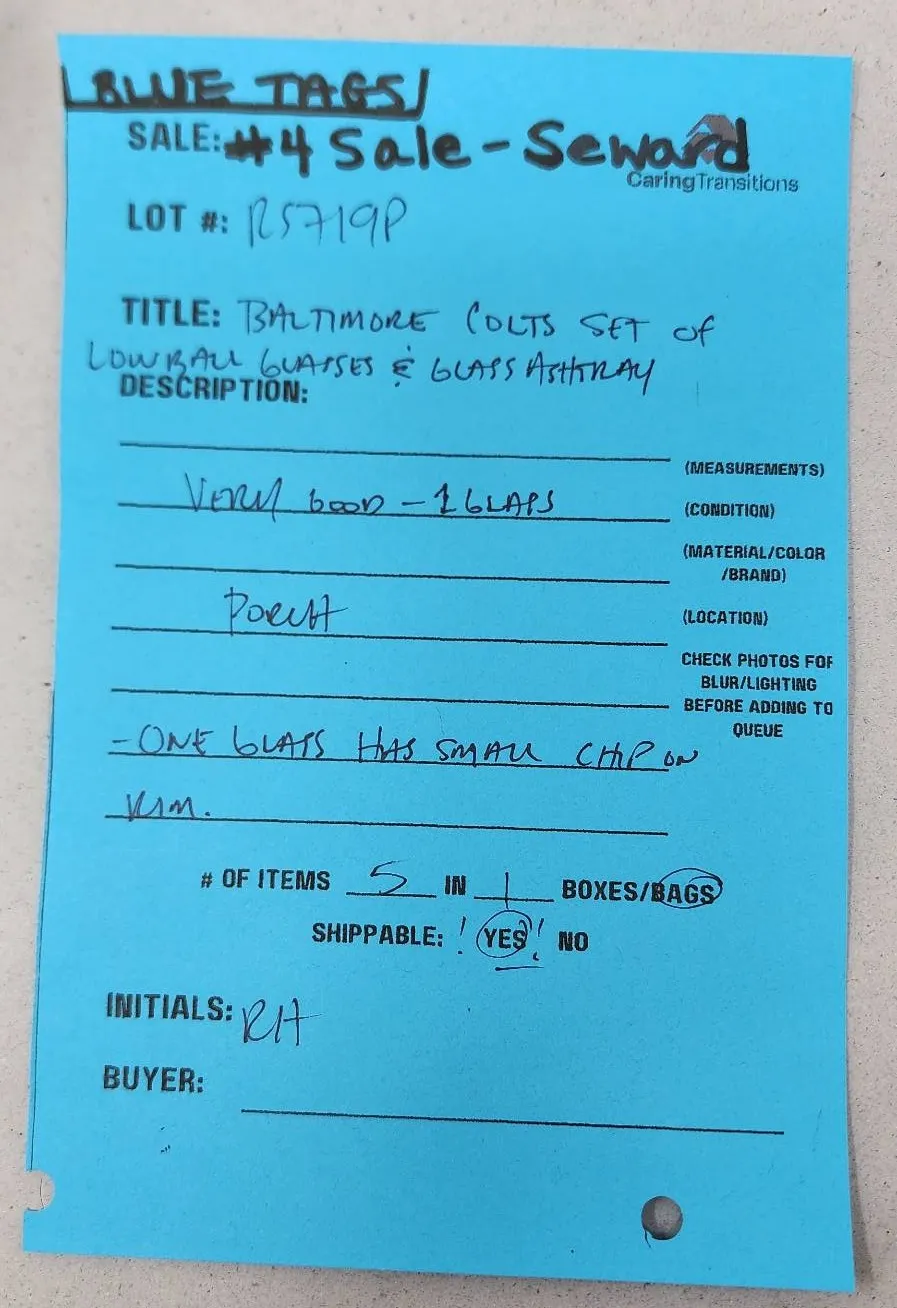 BLUE TAGS
SALE: #4 Sale - Seward
CaringTransitions
LOT #: R5719P
TITLE: BALTIMORE COLTS SET OF
LOWBALL GLASSES & GLASS ASHTRAY
DESCRIPTION:
(MEASUREMENTS)
VERY GOOD - 1 GLASS (CONDITION)
(MATERIAL/COLOR
/BRAND)
PORCH (LOCATION)
CHECK PHOTOS FOR
BLUR/LIGHTING
BEFORE ADDING TO
QUEUE
- ONE GLASS HAS SMALL CHIP ON
RIM.
# OF ITEMS 5 IN 1 BOXES/BAGS
SHIPPABLE: ! YES ! NO
INITIALS: RH
BUYER: